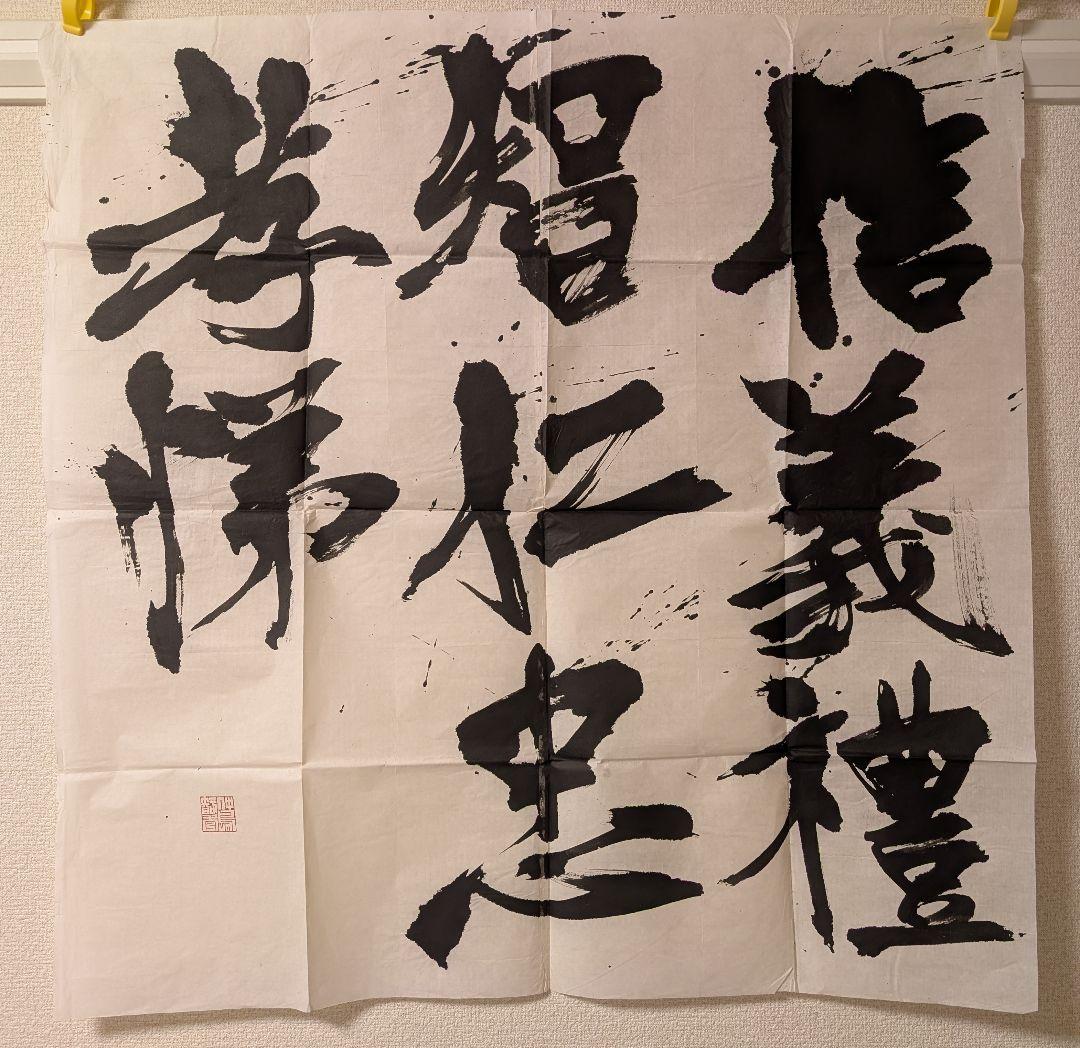 信義禮
智仁忠
孝悌